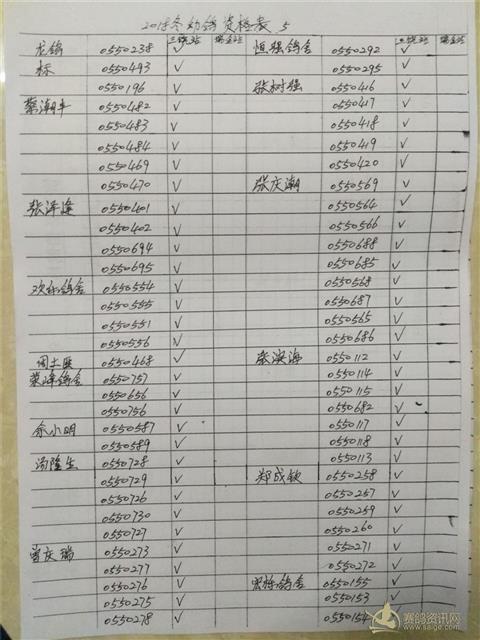 2018冬幼鸽资检表 5
三鸽站 恒强鸽舍
龙锦 0550238 ✓ 恒强鸽舍 0550292 ✓
标 0550493 ✓ 0550295 ✓
0550196 ✓ 张树强 0550416 ✓
蔡潮丰 0550482 ✓ 0550417 ✓
0550483 ✓ 0550418 ✓
0550484 ✓ 0550419 ✓
0550469 ✓ 0550420 ✓
0550470 ✓ 张庆潮 0550569 ✓
张泽逢 0550401 ✓ 0550564 ✓
0550402 ✓ 0550566 ✓
0550694 ✓ 0550688 ✓
0550695 ✓ 0550685 ✓
欢标鸽舍 0550554 ✓ 0550568 ✓
0550555 ✓ 0550687 ✓
0550551 ✓ 0550565 ✓
0550556 ✓ 0550686 ✓
周土亚 0550468 ✓ 张滨海 0550112 ✓
荣峰鸽舍 0550757 ✓ 0550114 ✓
0550656 ✓ 0550115 ✓
0550756 ✓ 0550682 ✓
余小明 0550587 ✓ 0550117 ✓
0550589 ✓ 0550118 ✓
汤隆生 0550728 ✓ 0550113 ✓
0550729 ✓ 郑成钦 0550258 ✓
0550726 ✓ 0550257 ✓
0550730 ✓ 0550259 ✓
0550727 ✓ 0550260 ✓
曾庆瑞 0550273 ✓ 0550271 ✓
0550277 ✓ 0550272 ✓
0550276 ✓ 鸽舍 0550155 ✓
0550275 ✓ 0550153 ✓
0550278 ✓ 0550154 ✓
赛鸽资讯网
www.saige.com